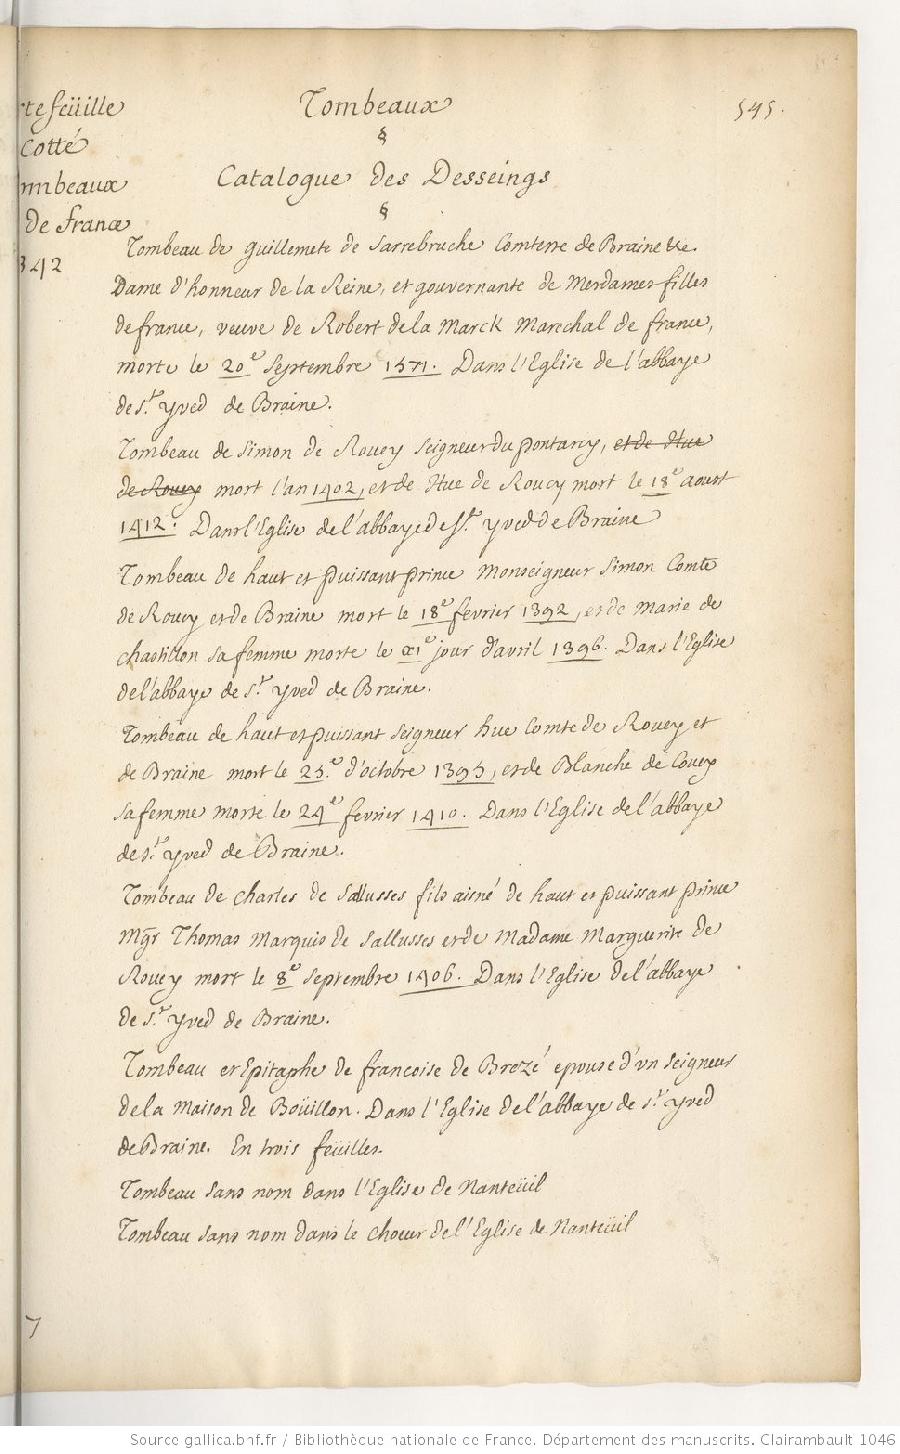 tefeüille
Cotté
mbeaux
de france
342
Tombeaux
545.
§
Catalogue des Desseings
§
Tombeau de guillemete de sarrebruche Comtesse de Braine &c.
Dame d'honneur de la Reine, et gouvernante de Mesdames filles
de france, veuve de Robert de la Marck Marechal de france,
morte le 20.e septembre 1571. Dans l'Eglise de l'abbaye
de s.t yved de Braine.
Tombeau de simon de Roucy seigneur du pontarcy, et de Hue
de Roucy mort l'an 1402, et de Hue de Roucy mort le 18.e aoust
1412. Dans l'Eglise de l'abbaye de s.t yved de Braine
Tombeau de haut et puissant prince Monseigneur simon Comte
de Roucy et de Braine mort le 18.e fevrier 1392, et de Marie de
chastillon sa femme morte le xi.e jour d'avril 1396. Dans l'Eglise
de l'abbaye de s.t yved de Braine.
Tombeau de haut et puissant seigneur hue Comte de Roucy et
de Braine mort le 25.e d'octobre 1395, et de Blanche de Coucy
sa femme morte le 24.e fevrier 1410. Dans l'Eglise de l'abbaye
de s.t yved de Braine.
Tombeau de charles de sallusses fils aisné de haut et puissant prince
Mgr Thomas Marquis de sallusses et de Madame Marguerite de
Roucy mort le 8.e septembre 1406. Dans l'Eglise de l'abbaye
de s.t yved de Braine.
Tombeau et Epitaphe de francoise de Brezé epouse d'un seigneur
de la Maison de Boüillon. Dans l'Eglise de l'abbaye de s.t yved
de Braine. En trois feüilles.
Tombeau sans nom dans l'Eglise de Nanteüil
Tombeau sans nom dans le choeur de l'Eglise de Nanteüil
7
Source gallica.bnf.fr / Bibliothèque nationale de France. Département des manuscrits. Clairambault 1046